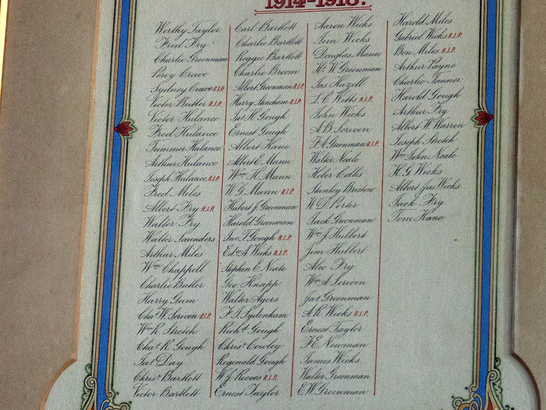 1914-1918.
Worthy Taylor
Fred Fry
Charlie Greenman
Percy Crewe
Sydney Crewe R.I.P.
Victor Butler R.I.P.
Victor Hulance
Fred Hulance
Trimmer Hulance
Arthur Hulance
Joseph Hulance R.I.P.
Fred Miles
Albert Fry R.I.P.
Walter Fry
Walter Saunders
Arthur Miles
Wm Chappell
Charlie Butler
Harry Gum
Chas W. Scriven R.I.P.
Wm R. Stretch
Chas R. Gough
Jas Day
Chris Bartlett
Victor Bartlett
Carl Bartlett
Charlie Bartlett
Reggie Bartlett
Charlie Broom
Albert Greenman R.I.P.
Harry Stinchcom R.I.P.
Jas H. Gough
Ernest Gough
Albert Kane
Albert E. Mann
Wm H. Mann
W.G. Mann R.I.P.
Hubert J. Greenman
Harold Greenman
Jno T. Gough R.I.P.
Edwd A. Wicks R.I.P.
Stephen C. Neate
Geo. Knapp
Walter Ayers
F.I. Sydenham
Richd Gough
Chris Cowley
Reginald Gough
W.J. Reeves R.I.P.
Ernest Taylor
Aaron Wicks
Tom Wicks
Douglas Mann
H.W. Greenman
Jas Hazell
L.C. Witts R.I.P.
John Wicks
A.B. Scriven
F.A. Greenman R.I.P.
Walter Neale
Heber Coles
Stanley Bristow
W.D. Porter
Jack Greenman
Wm J. Hulbert
Jim Hulbert
Alec Fry
Wm A. Scriven
Jas Greenman
A.R. Wicks R.I.P.
Ernest Taylor
F.E. Newman
James Wicks
Walter Greenman
E.W. Greenman
Harold Miles
Gabriel Wicks R.I.P.
Ben Miles R.I.P.
Arthur Payne
Charlie Tanner
Harold Gough
Arthur Fry
Albert W. Warren
Joseph Stretch
Wm John Neale
H.G. Wicks
Albert Jas Wicks
Jack Fry
Tom Kane